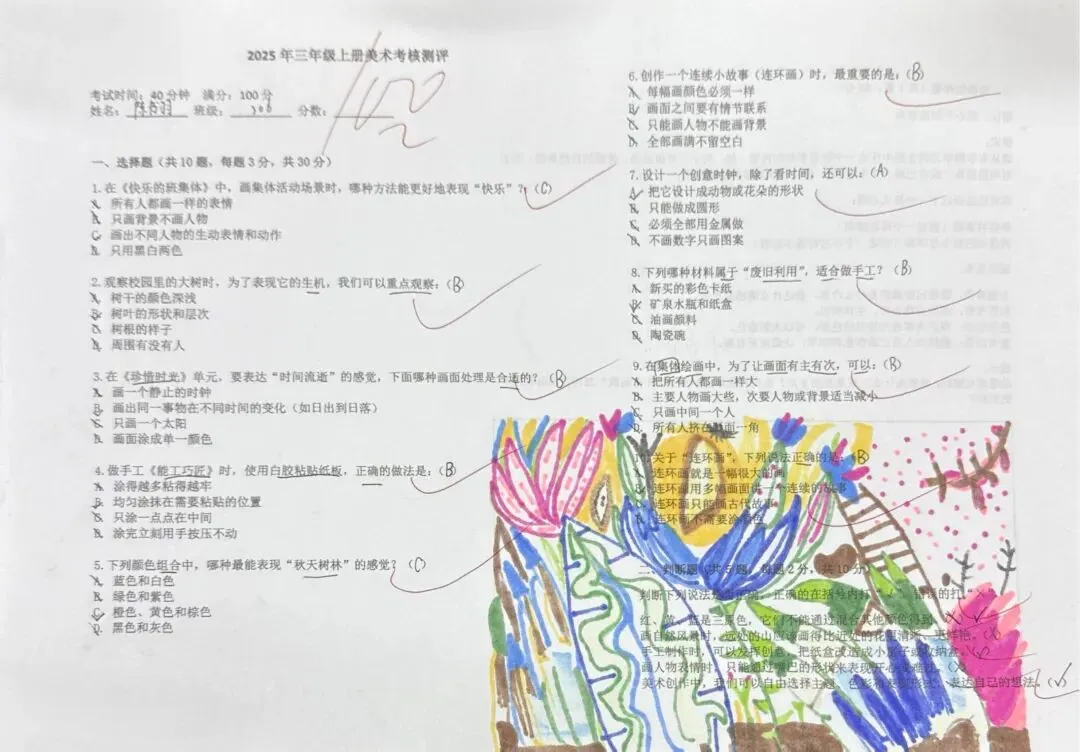 2025年三年级上册美术考核测评
100
考试时间：40分钟 满分：100分
姓名： 班级：306 分数：
一、选择题（共10题，每题3分，共30分）
1.在《快乐的班集体》中，画集体活动场景时，哪种方法能更好地表现“快乐”？（C）
A、所有人都画一样的表情
B、只画背景不画人物
C、画出不同人物的生动表情和动作
D、只用黑白两色
2.观察校园里的大树时，为了表现它的生机，我们可以重点观察：（B）
A、树干的颜色深浅
B、树叶的形状和层次
C、树根的样子
D、周围有没有人
3.在《珍惜时光》单元，要表达“时间流逝”的感觉，下面哪种画面处理是合适的？（B）
A、画一个静止的时钟
B、画出同一事物在不同时间的变化（如日出到日落）
C、只画一个太阳
D、画面涂成单一颜色
4.做手工《能工巧匠》时，使用白胶粘贴纸板，正确的做法是：（B）
A、涂得越多粘得越牢
B、均匀涂抹在需要粘贴的位置
C、只涂一点点在中间
D、涂完立刻用手按压不动
5.下列颜色组合中，哪种最能表现“秋天树林”的感觉？（C）
A、蓝色和白色
B、绿色和紫色
C、橙色、黄色和棕色
D、黑色和灰色
6.创作一个连续小故事（连环画）时，最重要的是：（B）
A、每幅画颜色必须一样
B、画面之间要有情节联系
C、只能画人物不能画背景
D、全部画满不留空白
7.设计一个创意时钟，除了看时间，还可以：（A）
A、把它设计成动物或花朵的形状
B、只能做成圆形
C、必须全部用金属做
D、不画数字只画图案
8.下列哪种材料属于“废旧利用”，适合做手工？（B）
A、新买的彩色卡纸
B、矿泉水瓶和纸盒
C、油画颜料
D、陶瓷碗
9.在集体绘画中，为了让画面有主有次，可以：（B）
A、把所有人都画一样大
B、主要人物画大些，次要人物或背景适当减小
C、只画中间一个人
D、所有人挤在画面一角
10.关于“连环画”，下列说法正确的是：（B）
A、连环画就是一幅很大的画
B、连环画用多幅画面讲一个连续的故事
C、连环画只能画古代故事
D、连环画不需要涂颜色
二、判断题（共5题，每题2分，共10分）
判断下列说法是否正确，正确的在括号内打“√”，错误的打“×”
红、黄、蓝是三原色，它们不能通过混合其他颜色得到。
画自然风景时，远处的山应该画得比近处的花更清晰、更鲜艳。（X）
手工制作时，可以发挥创意，把纸盒改造成小房子或收纳盒。
画人物表情时，只能通过嘴巴的形状来表现开心或难过。（X）
美术创作中，我们可以自由选择主题、色彩和表现形式，表达自己的想法。（√）